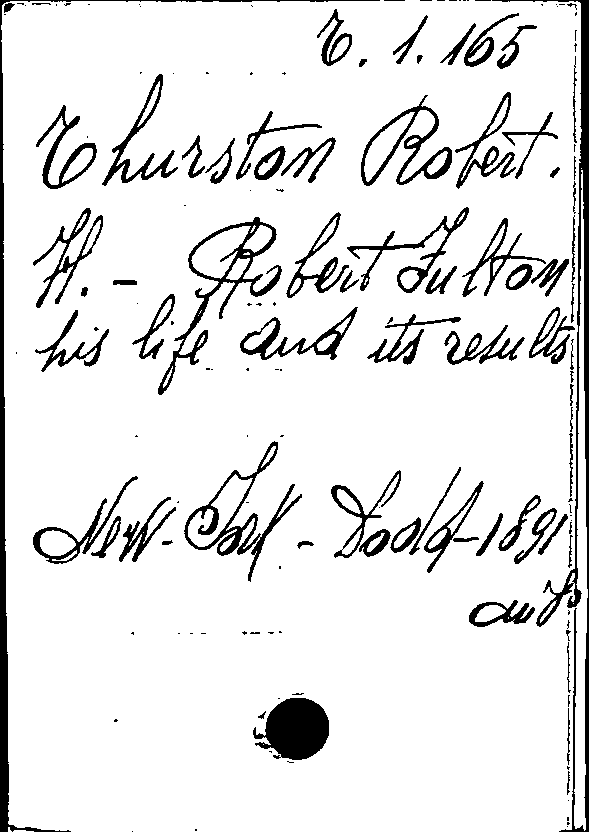 T. 1. 165
Thurston Robert.
H. - Robert Fulton
his life and its results
New-York - Dodd-1891
in 8°